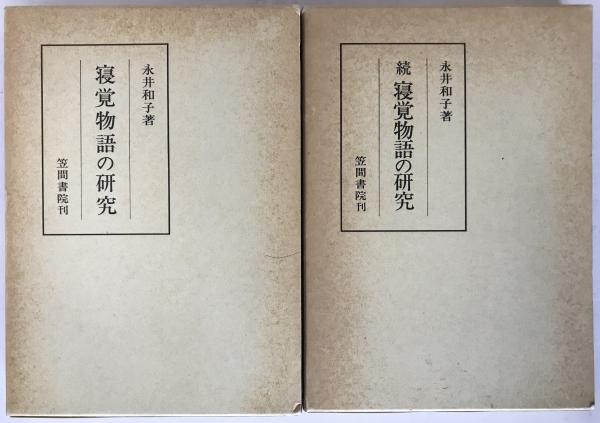 永井和子著
寝覚物語の研究
笠間書院刊
永井和子著
続 寝覚物語の研究
笠間書院刊